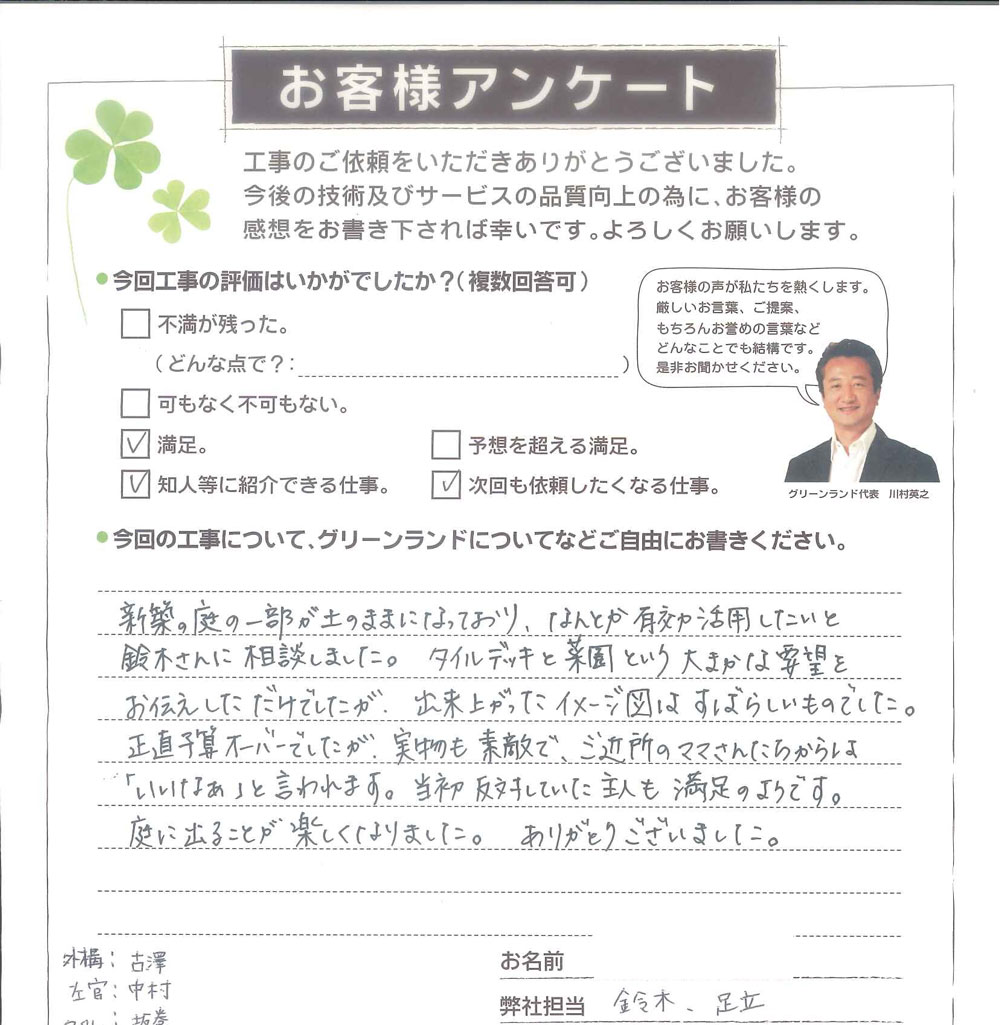 お客様アンケート
工事のご依頼をいただきありがとうございました。
今後の技術及びサービスの品質向上の為に、お客様の
感想をお書き下されば幸いです。よろしくお願いします。
今回工事の評価はいかがでしたか？（複数回答可）
不満が残った。
（どんな点で？：　）
可もなく不可もない。
満足。
予想を超える満足。
知人等に紹介できる仕事。
次回も依頼したくなる仕事。
お客様の声が私たちを熱くします。
厳しいお言葉、ご提案、
もちろんお誉めの言葉など
どんなことでも結構です。
是非お聞かせください。
グリーンランド代表 川村英之
今回の工事について、グリーンランドについてなどご自由にお書きください。
新築の庭の一部が土のままになっており、なんとか有効活用したいと
鈴木さんに相談しました。 タイルデッキと菜園という大まかな要望を
お伝えしただけでしたが、出来上がったイメージ図はすばらしいものでした。
正直予算オーバーでしたが、実物も素敵で、ご近所のママさんたちからは
「いいなぁ」と言われます。当初反対していた主人も満足のようです。
庭に出ることが楽しくなりました。 ありがとうございました。
外構：古澤
左官：中村
お名前
弊社担当 鈴木、足立